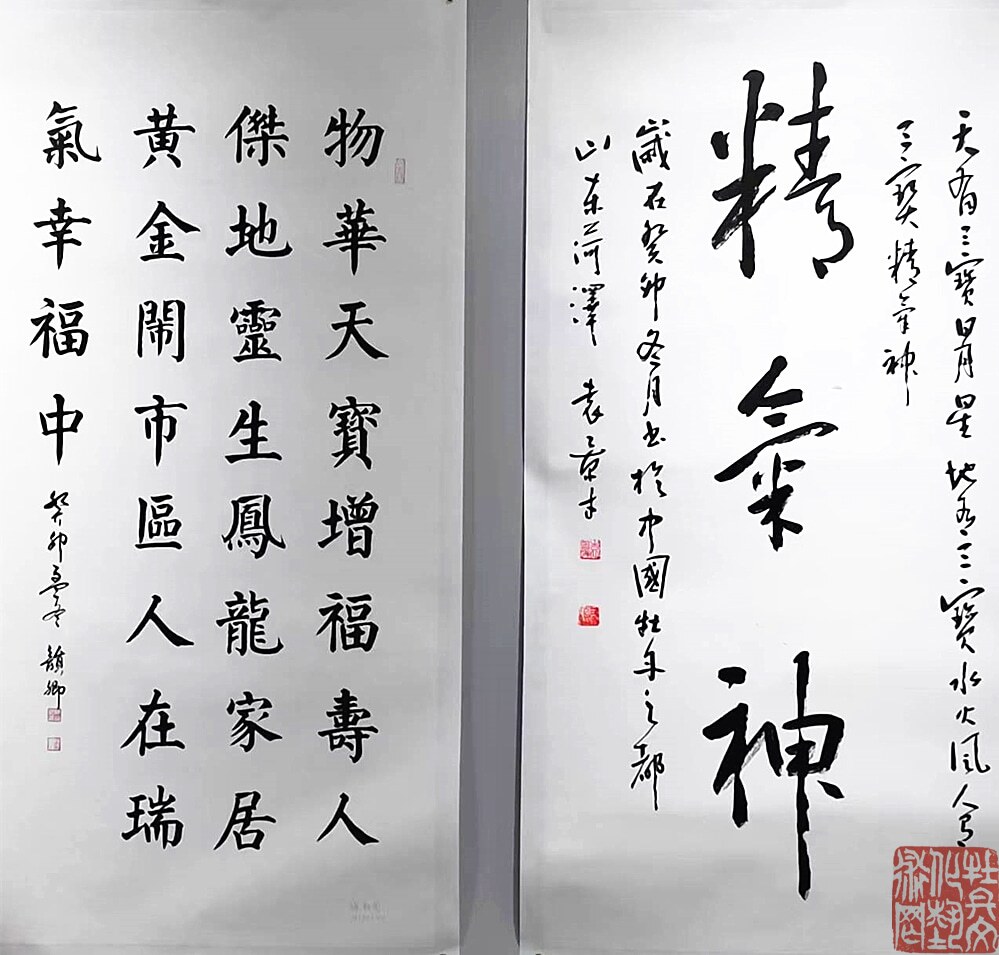 天有三寶日月星 地有三寶水火風 人有
三寶精氣神
精氣神
歲在癸卯冬月书於中國牡丹之都
山东菏澤 袁
物華天寶增福壽人
傑地靈生鳳龍家居
黃金鬧市區人在瑞
氣幸福中
癸卯孟冬